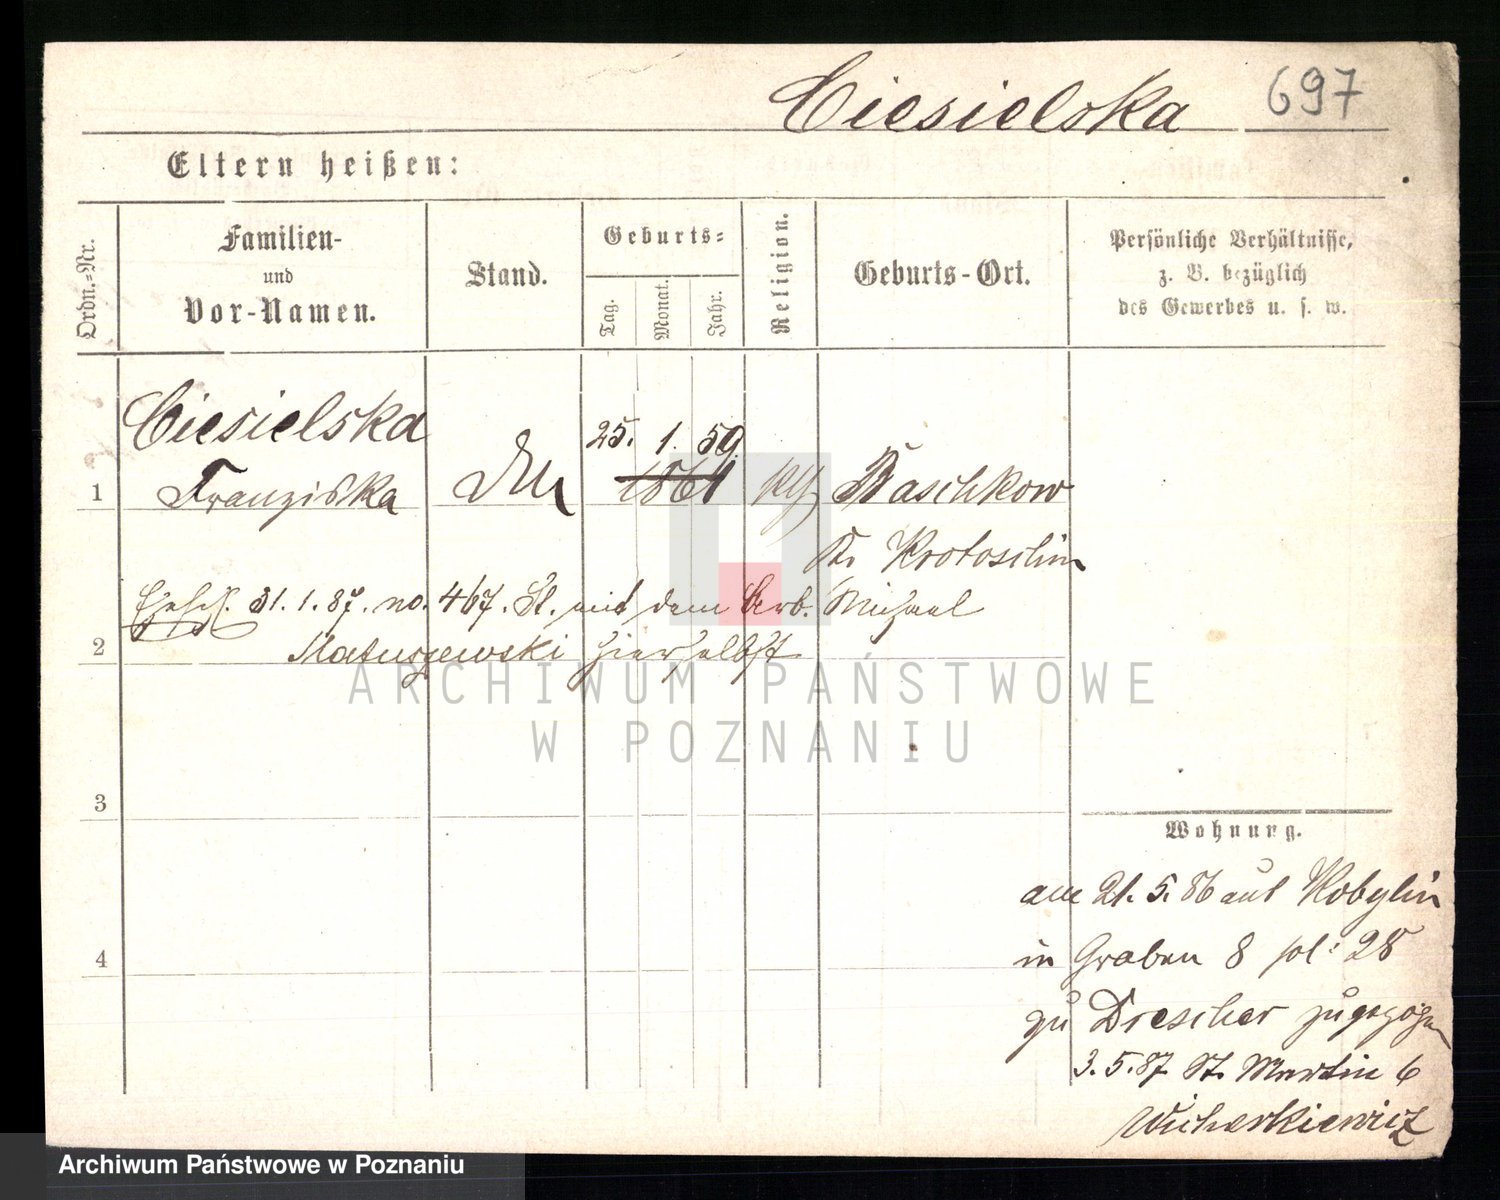 Ciesielska 697
Eltern heißen:
Ordn.-Nr.
Familien-
und
Vor-Namen.
Stand.
Geburts-
Tag.
Monat.
Jahr.
Religion.
Geburts-Ort.
Persönliche Verhältnisse,
z. B. bezüglich
des Gewerbes u. s. w.
Ciesielska
25. 1. 59.
1 Franziska 1861 Baschkow
Kr. Krotoschin
31. 1. 87. no. 467. St. mit dem Arb. Michael
2 Matuszewski hierselbst
3
4
Wohnung.
am 21. 5. 86 aus Kobylin
in Graben 8 bei: 28
zu Drescher zugezogen
3. 5. 87 St. Martin 6
Wicherkiewicz
ARCHIWUM PAŃSTWOWE
W POZNANIU
Archiwum Państwowe w Poznaniu